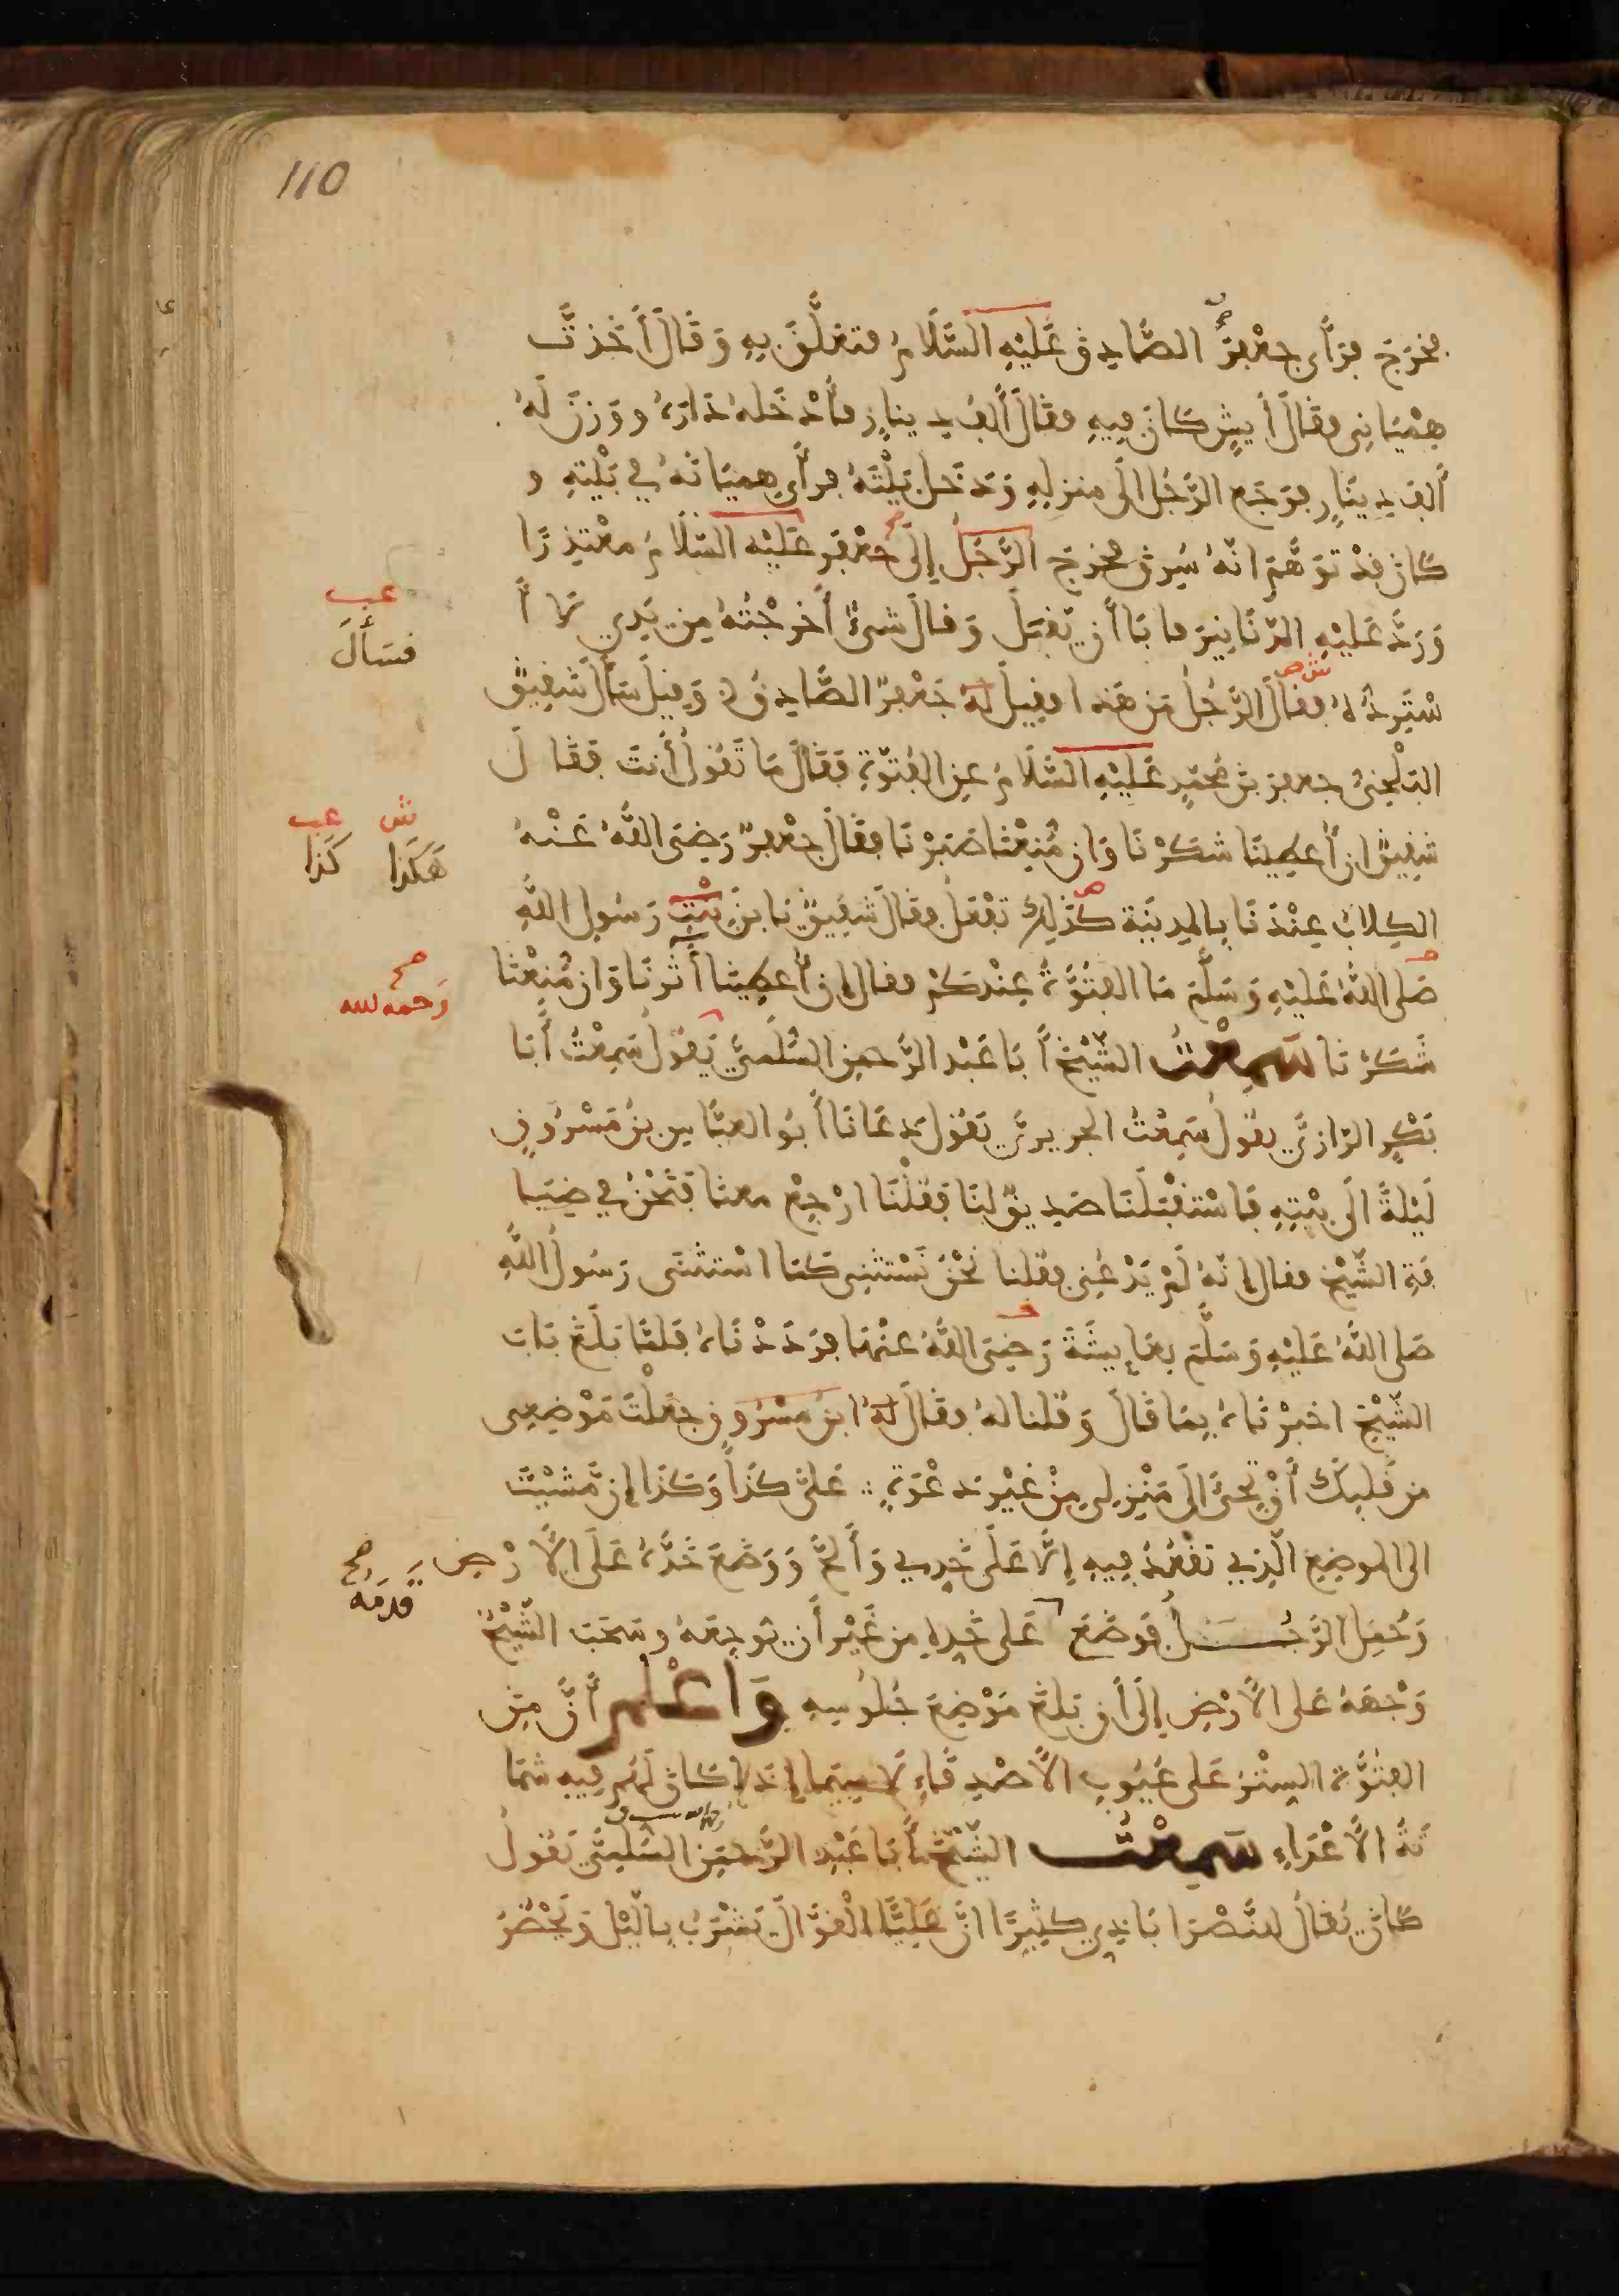 110
فخرج فرأى جعفر الصادق عليه السلام فتعلق به وقال أخذت
هميانى فقال أيش كان فيه فقال ألف دينار فأدخله داره ووزن له
ألف دينار فرجع الرجل الى منزله ودخل بيته فرأى هميانه في بيته و
كان قد توهم انه سرق فخرج الرجل إلى جعفر عليه السلام معتذرا
ورد عليه الدنانير فابا أن يقبل وقال شىء أخرجته من يدي لا أ
عب
فسأل
ستردّه فقال الرجل من هذا فقيل له جعفر الصادق وقيل سأل شقيق
البلخى جعفر بن محمد عليه السلام عن الفتوة فقال ما تقول أنت فقال
ش عب
هكذا كذا
شقيق ان أعطينا شكرنا وان منعنا صبرنا فقال جعفر رضى الله عنه
الكلاب عندنا بالمدينة كذلك تفعل فقال شقيق يابن بنت رسول الله
صح
رحمه لله
صلى الله عليه وسلم ما الفتوة عندكم فقال إن أعطينا أثرنا وان منعنا
شكرنا سمعت الشيخ أبا عبد الرحمن السلمي يقول سمعت أبا
بكر الرازي يقول سمعت الجريري يقول دعانا أبو العباس بن مسروق
ليلة الى بيته فاستقبلنا صديق لنا فقلنا ارجع معنا فنحن في ضيا
فة الشيخ فقال إنه لم يدعنى فقلنا نحن نستثنى كما استثنى رسول الله
صلى الله عليه وسلم بعايشة رضى الله عنها فرددناه فلما بلغ باب
الشيخ اخبرناه بما قال وقلنا له فقال له ابن مسروق جعلت موضعى
من قلبك أن تجئ الى منزلي من غير دعوة علي كذا وكذا إن مشيت
الى الموضع الذي تقعد فيه إلا على خدي وألح ووضع خده على الارض
صح
قدمه
وحمل الرجل فوضع على خده من غير أن يوجعه وسحب الشيخ
وجهه على الارض إلى أن بلغ موضع جلوسه واعلم أن من
الفتوة الستر على عيوب الاصدقاء لاسيما إذا كان لهم فيه شما
تة الاعداء سمعت الشيخ أبا عبد الرحمن السلمي يقول
كان يقال للنصراباذي كثيرا ان عليا القوال يشرب باليل ويحضر